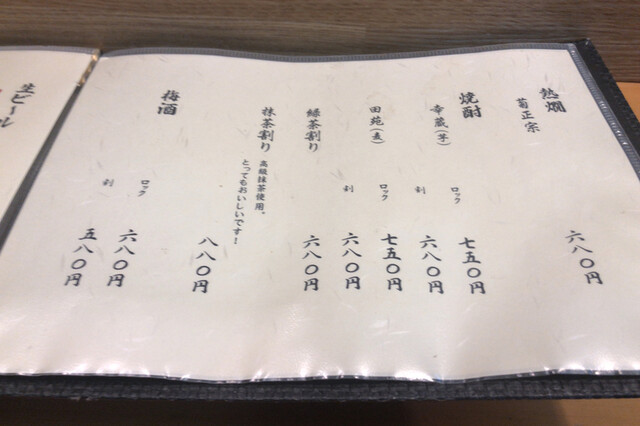 熱燗
菊正宗
六八〇円
焼酎
幸蔵(芋)
ロック
七五〇円
割
六八〇円
田苑(麦)
ロック
七五〇円
割
六八〇円
緑茶割り
六八〇円
抹茶割り
高級抹茶使用。
とってもおいしいです!
八八〇円
梅酒
ロック
六八〇円
割
五八〇円
生ビール